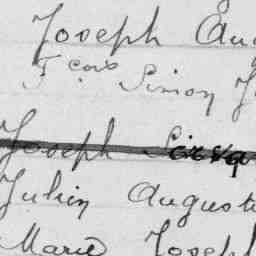 Joseph Aug
Fcois Simon J
Joseph
Julien Auguste
Marie Joseph